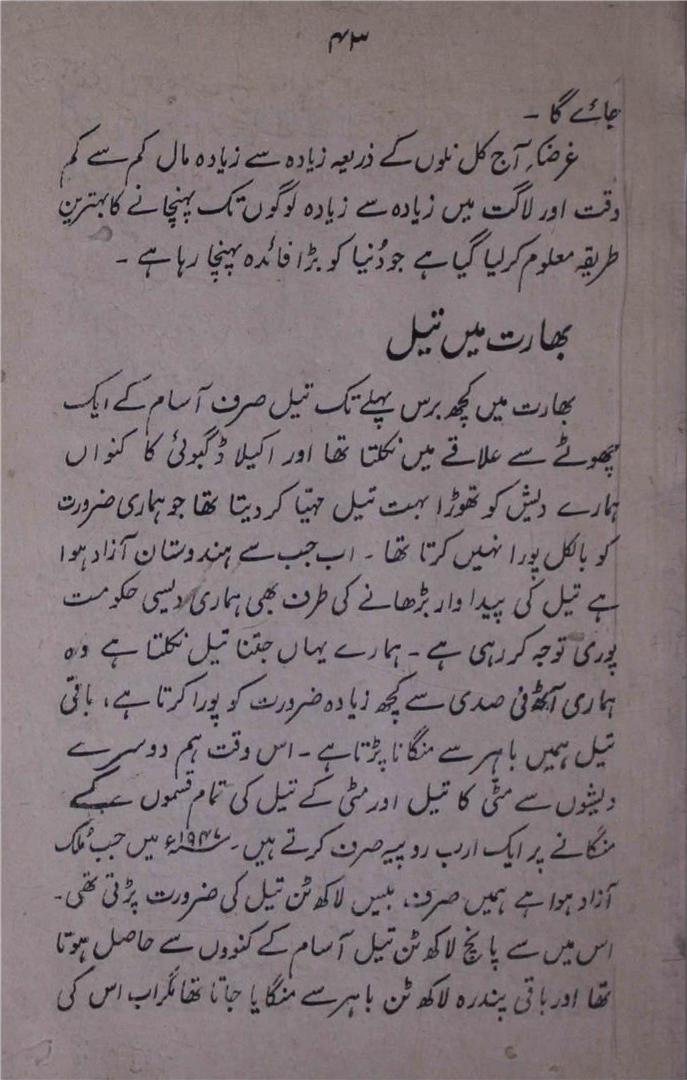 ۴۳
جائے گا ۔
غرضکہ آج کل نلوں کے ذریعہ زیادہ سے زیادہ مال کم سے کم
وقت اور لاگت میں زیادہ سے زیادہ لوگوں تک پہنچانے کا بہترین
طریقہ معلوم کر لیا گیا ہے جو دُنیا کو بڑا فائدہ پہنچا رہا ہے ۔
بھارت میں تیل
بھارت میں کچھ برس پہلے تک تیل صرف آسام کے ایک
چھوٹے سے علاقے میں نکلتا تھا اور اکیلا ڈگبوئی کا کنواں
ہمارے دیش کو تھوڑا بہت تیل مہیّا کر دیتا تھا جو ہماری ضرورت
کو بالکل پورا نہیں کرتا تھا ۔ اب جب سے ہندوستان آزاد ہوا
ہے تیل کی پیداوار بڑھانے کی طرف بھی ہماری دیسی حکومت
پوری توجہ کر رہی ہے ۔ ہمارے یہاں جتنا تیل نکلتا ہے وہ
ہماری آٹھ فی صدی سے کچھ زیادہ ضرورت کو پورا کرتا ہے، باقی
تیل ہمیں باہر سے منگانا پڑتا ہے ۔ اس وقت ہم دوسرے
دیشوں سے مٹی کا تیل اور مٹی کے تیل کی تمام قسموں کے
منگانے پر ایک ارب روپیہ صرف کرتے ہیں ۔ ۱۹۴۷ء میں جب مُلک
آزاد ہوا ہے ہمیں صرف، بیس لاکھ ٹن تیل کی ضرورت پڑتی تھی ۔
اس میں سے پانچ لاکھ ٹن تیل آسام کے کنووں سے حاصل ہوتا
تھا اور باقی پندرہ لاکھ ٹن باہر سے منگایا جاتا تھا مگر اب اس کی